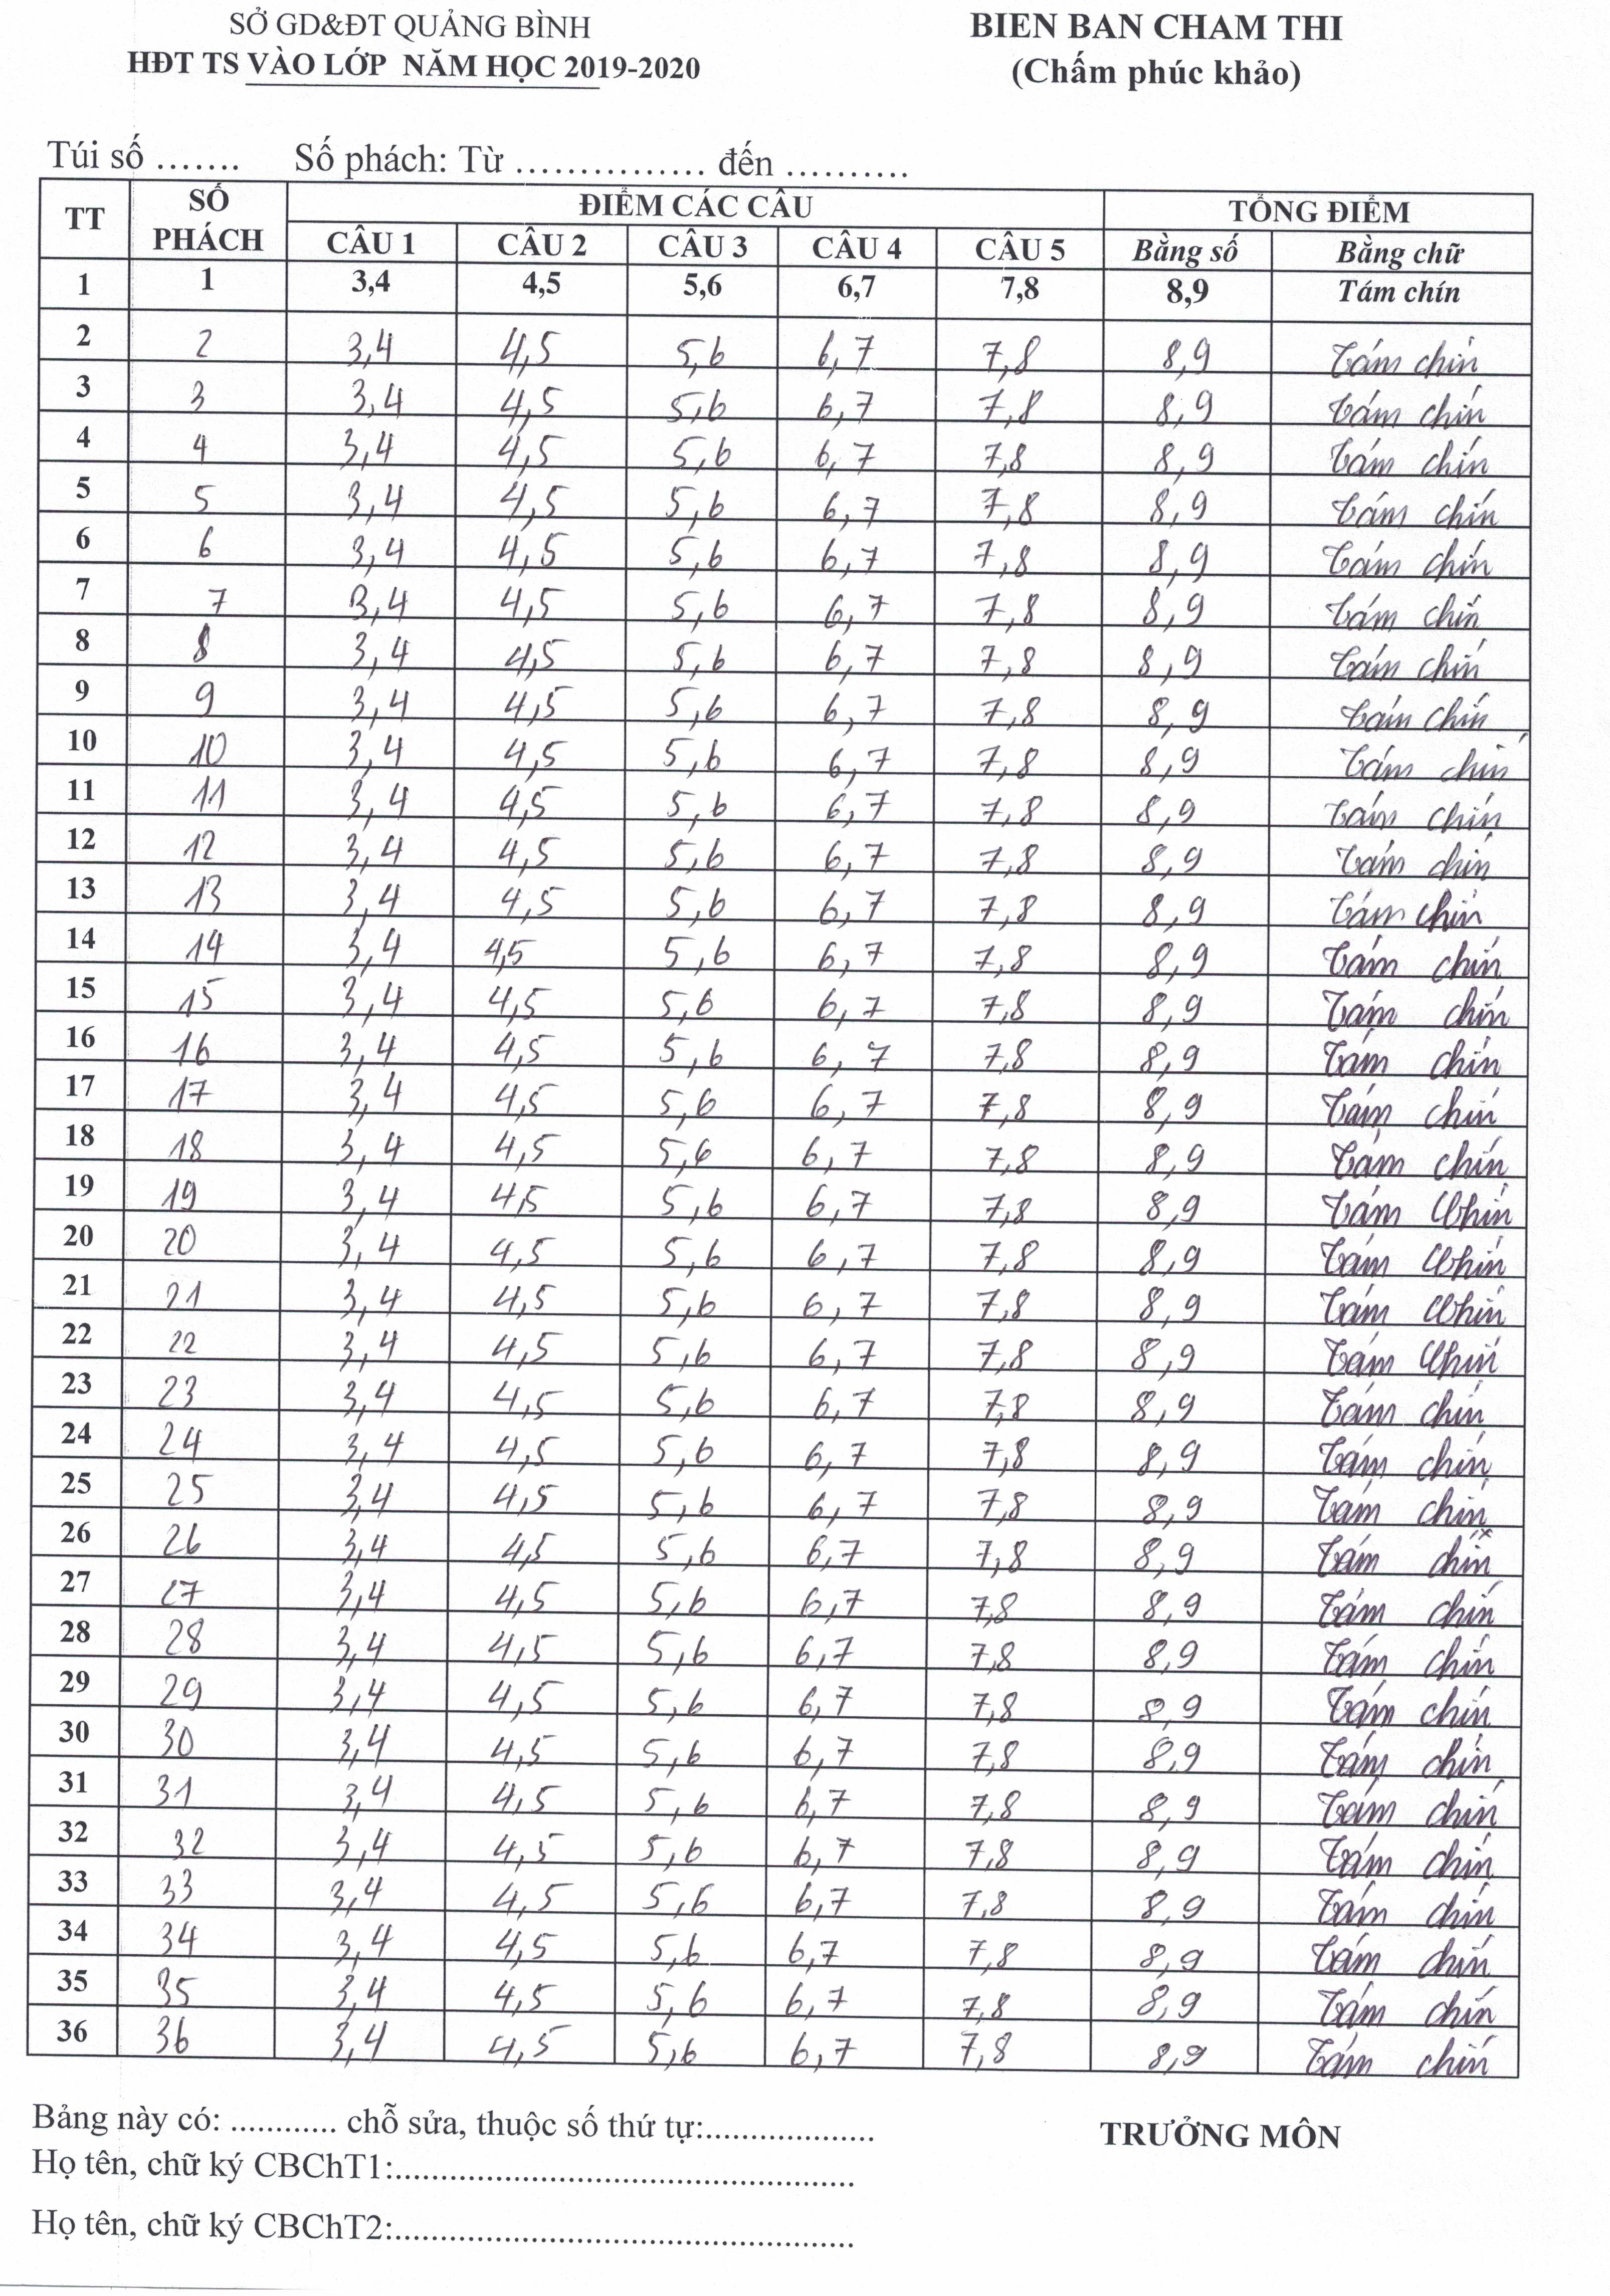 SỞ GD&ĐT QUẢNG BÌNH
HĐT TS VÀO LỚP NĂM HỌC 2019-2020
BIEN BAN CHAM THI
(Chấm phúc khảo)
Túi số ....... Số phách: Từ ............... đến ..........
TT SỐ PHÁCH ĐIỂM CÁC CÂU TỔNG ĐIỂM
CÂU 1 CÂU 2 CÂU 3 CÂU 4 CÂU 5 Bằng số Bằng chữ
1 1 3,4 4,5 5,6 6,7 7,8 8,9 Tám chín
2 2 3,4 4,5 5,6 6,7 7,8 8,9 Tám chín
3 3 3,4 4,5 5,6 6,7 7,8 8,9 Tám chín
4 4 3,4 4,5 5,6 6,7 7,8 8,9 Tám chín
5 5 3,4 4,5 5,6 6,7 7,8 8,9 Tám chín
6 6 3,4 4,5 5,6 6,7 7,8 8,9 Tám chín
7 7 3,4 4,5 5,6 6,7 7,8 8,9 Tám chín
8 8 3,4 4,5 5,6 6,7 7,8 8,9 Tám chín
9 9 3,4 4,5 5,6 6,7 7,8 8,9 Tám chín
10 10 3,4 4,5 5,6 6,7 7,8 8,9 Tám chín
11 11 3,4 4,5 5,6 6,7 7,8 8,9 Tám chín
12 12 3,4 4,5 5,6 6,7 7,8 8,9 Tám chín
13 13 3,4 4,5 5,6 6,7 7,8 8,9 Tám chín
14 14 3,4 4,5 5,6 6,7 7,8 8,9 Tám chín
15 15 3,4 4,5 5,6 6,7 7,8 8,9 Tám chín
16 16 3,4 4,5 5,6 6,7 7,8 8,9 Tám chín
17 17 3,4 4,5 5,6 6,7 7,8 8,9 Tám chín
18 18 3,4 4,5 5,6 6,7 7,8 8,9 Tám chín
19 19 3,4 4,5 5,6 6,7 7,8 8,9 Tám Chín
20 20 3,4 4,5 5,6 6,7 7,8 8,9 Tám Chín
21 21 3,4 4,5 5,6 6,7 7,8 8,9 Tám Chín
22 22 3,4 4,5 5,6 6,7 7,8 8,9 Tám Chín
23 23 3,4 4,5 5,6 6,7 7,8 8,9 Tám chín
24 24 3,4 4,5 5,6 6,7 7,8 8,9 Tám chín
25 25 3,4 4,5 5,6 6,7 7,8 8,9 Tám chín
26 26 3,4 4,5 5,6 6,7 7,8 8,9 Tám chín
27 27 3,4 4,5 5,6 6,7 7,8 8,9 Tám chín
28 28 3,4 4,5 5,6 6,7 7,8 8,9 Tám chín
29 29 3,4 4,5 5,6 6,7 7,8 8,9 Tám chín
30 30 3,4 4,5 5,6 6,7 7,8 8,9 Tám chín
31 31 3,4 4,5 5,6 6,7 7,8 8,9 Tám chín
32 32 3,4 4,5 5,6 6,7 7,8 8,9 Tám chín
33 33 3,4 4,5 5,6 6,7 7,8 8,9 Tám chín
34 34 3,4 4,5 5,6 6,7 7,8 8,9 Tám chín
35 35 3,4 4,5 5,6 6,7 7,8 8,9 Tám chín
36 36 3,4 4,5 5,6 6,7 7,8 8,9 Tám chín
Bảng này có: ............ chỗ sửa, thuộc số thứ tự:...................
TRƯỞNG MÔN
Họ tên, chữ ký CBChT1:....................................................
Họ tên, chữ ký CBChT2:....................................................